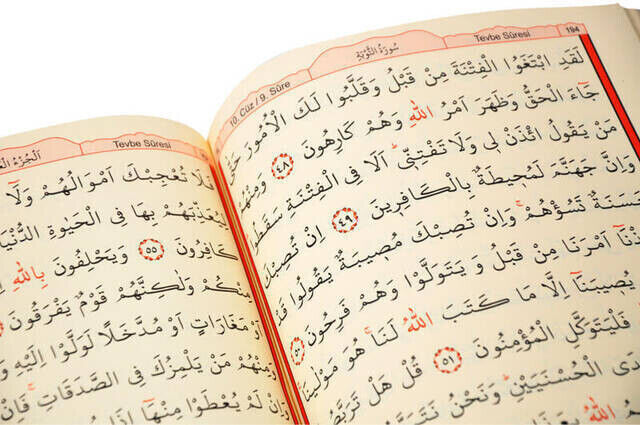 10. Cüz / 9. Sûre سُورَةُ التَّوْبَةِ Tevbe Sûresi 194
لَقَدِ ابْتَغَوُا الْفِتْنَةَ مِنْ قَبْلُ وَقَلَّبُوا لَكَ الْاُمُورَ
جَٓاءَ الْحَقُّ وَظَهَرَ اَمْرُ اللّٰهِ وَهُمْ كَارِهُونَ ﴿٤٨﴾ وَمِنْهُمْ
مَنْ يَقُولُ ائْذَنْ لٖي وَلَا تَفْتِنّٖي اَلَا فِي الْفِتْنَةِ سَقَطُوا
وَاِنَّ جَهَنَّمَ لَمُحٖيطَةٌ بِالْكَافِرٖينَ ﴿٤٩﴾ اِنْ تُصِبْكَ
حَسَنَةٌ تَسُؤْهُمْ وَاِنْ تُصِبْكَ مُصٖيبَةٌ يَقُولُوا
اَمْرَنَا مِنْ قَبْلُ وَيَتَوَلَّوْا وَهُمْ فَرِحُونَ ﴿٥٠﴾
يُصٖيبَنَٓا اِلَّا مَا كَتَبَ اللّٰهُ لَنَا هُوَ مَوْلٰينَا
فَلْيَتَوَكَّلِ الْمُؤْمِنُونَ ﴿٥١﴾ قُلْ هَلْ
الْحُسْنَيَيْنِ وَنَحْنُ
اللّٰهُ
Tevbe Sûresi اَلْجُزْءُ
فَلَا تُعْجِبْكَ اَمْوَالُهُمْ وَلَٓا
لِيُعَذِّبَهُمْ بِهَا فِي الْحَيٰوةِ الدُّنْيَا
كَافِرُونَ ﴿٥٥﴾ وَيَحْلِفُونَ بِاللّٰهِ
مِنْكُمْ وَلٰكِنَّهُمْ قَوْمٌ يَفْرَقُونَ
اَوْ مَغَارَاتٍ اَوْ مُدَّخَلًا لَوَلَّوْا اِلَيْهِ
مَنْ يَلْمِزُكَ فِي الصَّدَقَاتِ فَاِنْ
وَاِنْ لَمْ يُعْطَوْا مِنْهَٓا اِذَا